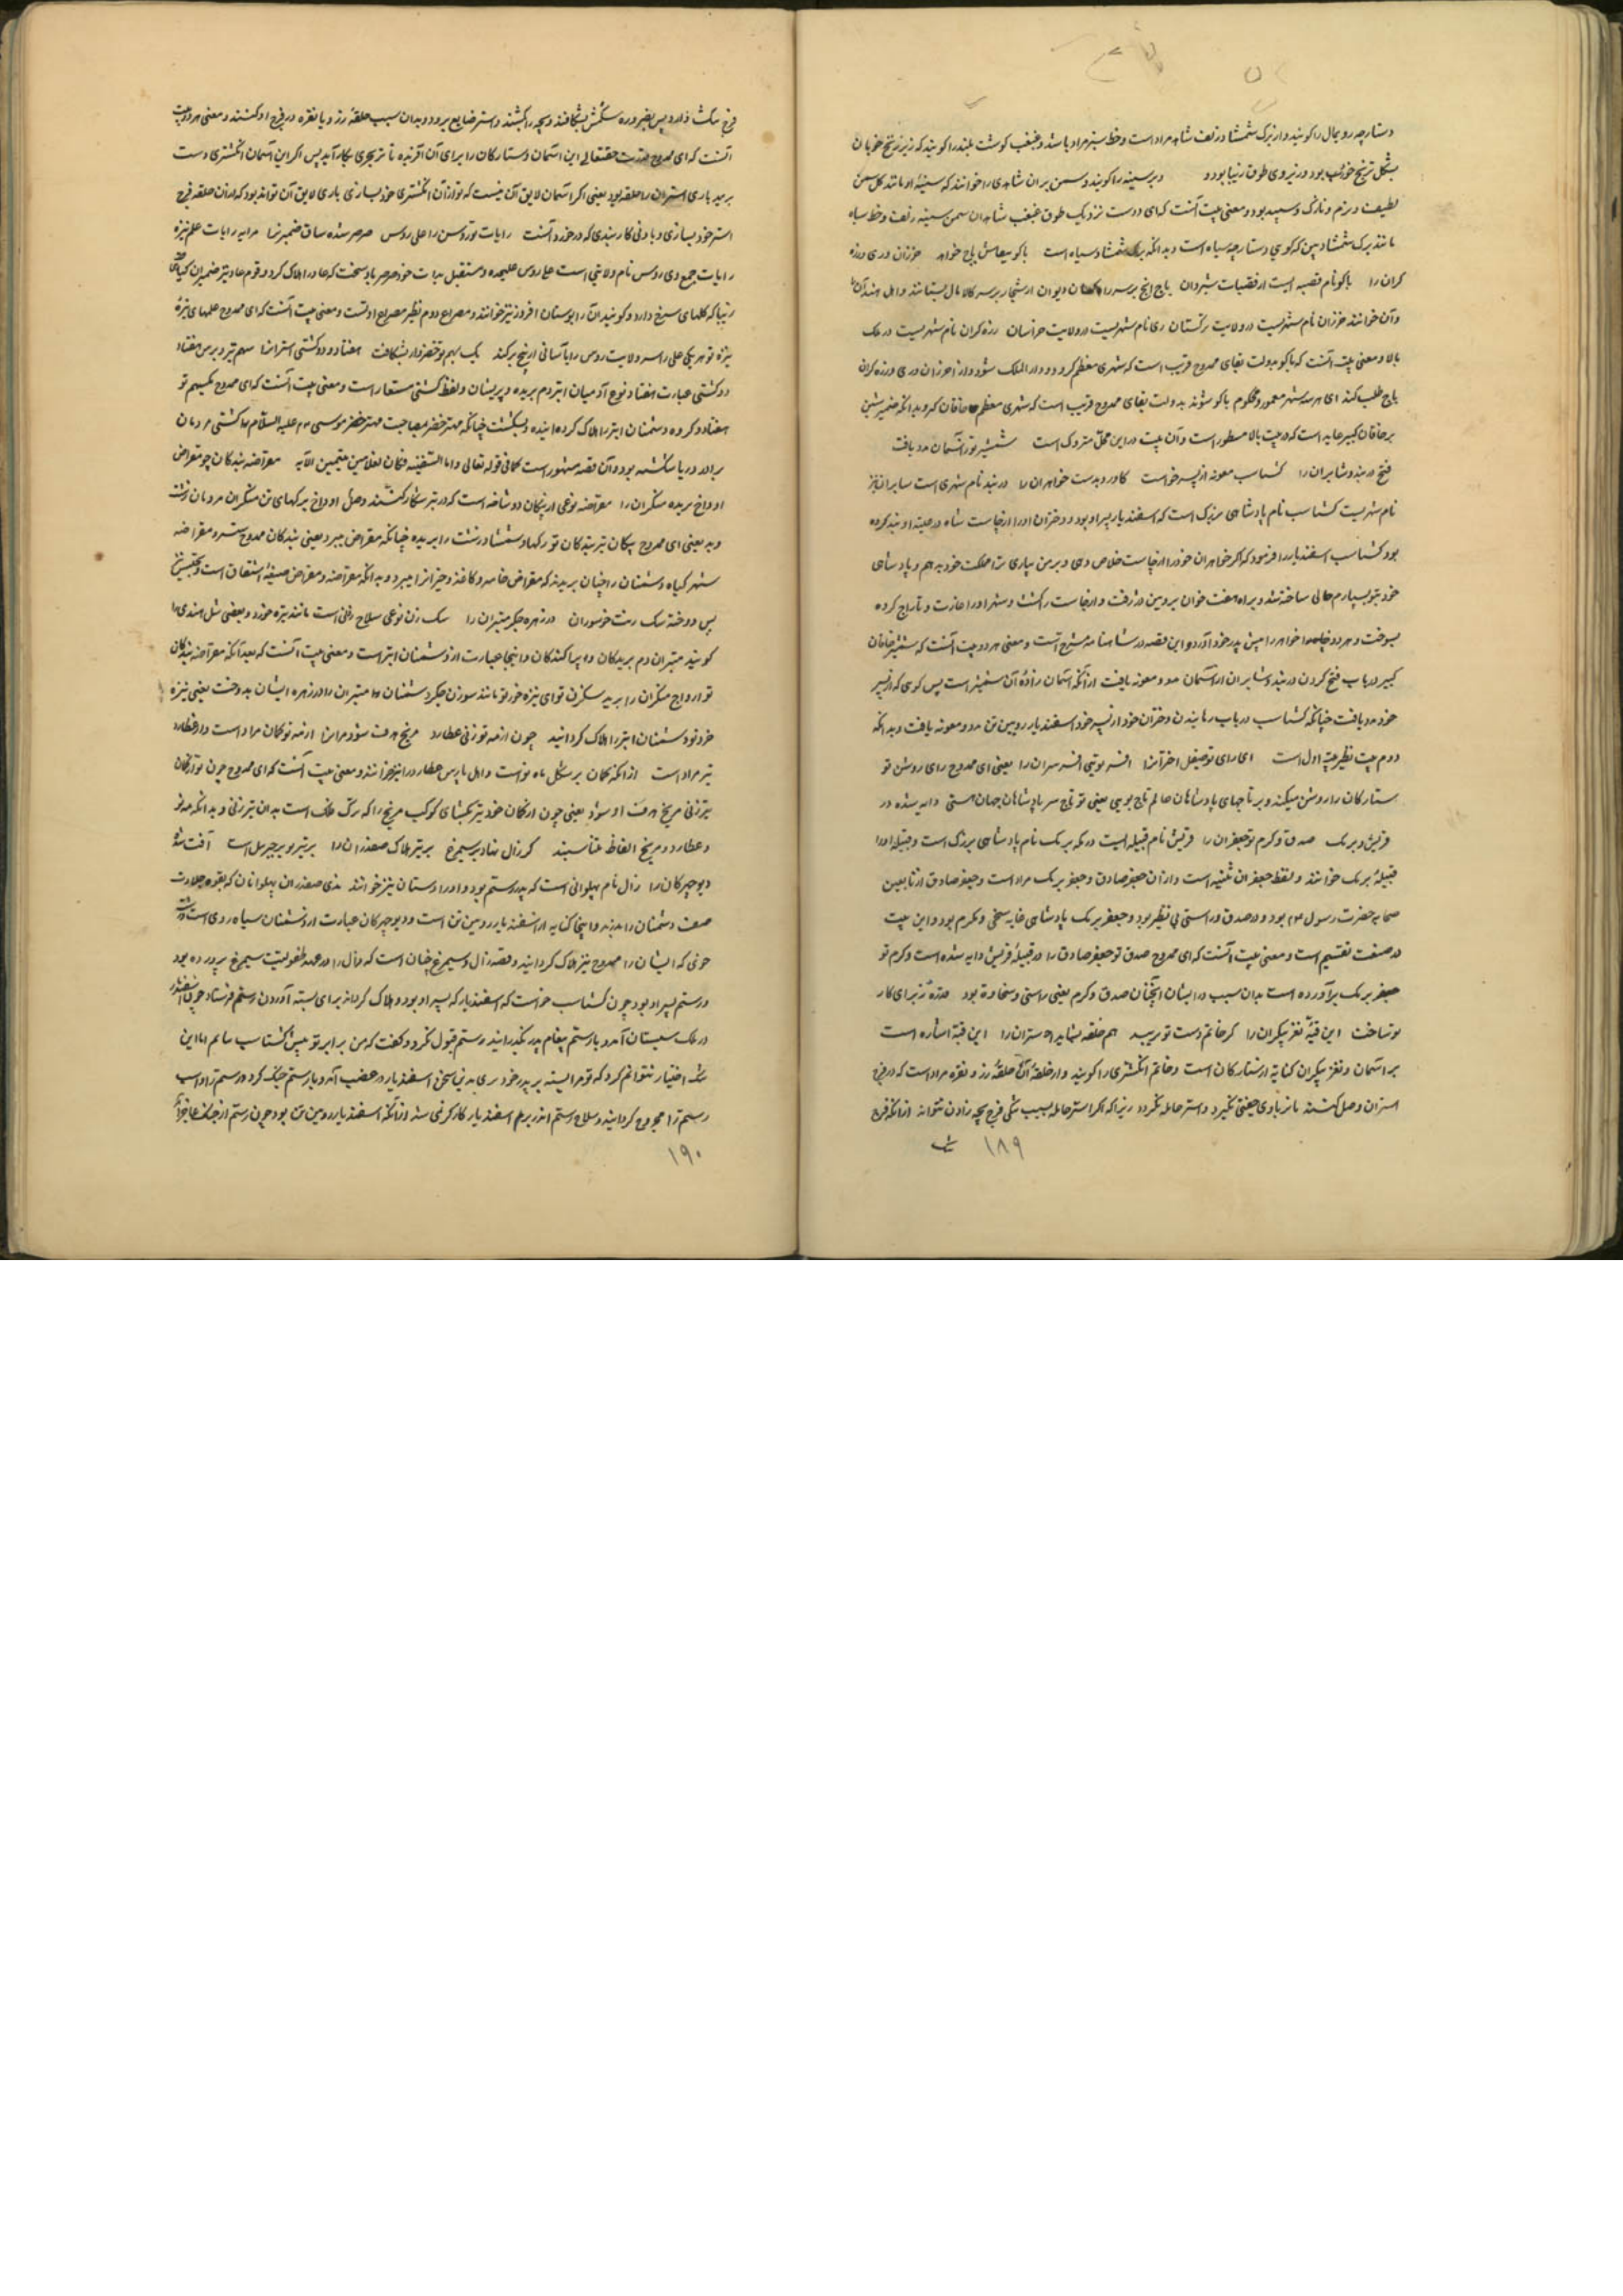 دستارچه رویمال را کویند و از برک شمشاد زلف شاهد مراد است و خط سبز مراد باشد و غبغب کوشت بلند را کویند که زیر زنخ خوبان
بشکل ترنج خوش بود و زنیروی طوق زیبا بود و بر سینه را کویند و سمن بران شاهدی را خوانند که سینهٔ او مانند کل سمن
لطیف و نرم و نازک و سپید بود و معنی بیت آنست که ای دوست نزدیک طوق غبغب شاهدان سمن سینه زلف و خط سیاه
مانند برک شمشاد بین که کویی دستارچهٔ سیاه است و بدانکه برک شمشاد سیاه است باکو ببقاش باج خواهد خزران و ری و زره
کران را باکو نام قصبه ایست از قصبات شروان باج آنچ بر سر راهها دیوان از تجار بر سر کالا مال بستانند و اهل هند آنرا
دان خوانند خزران نام شهریست در ولایت ترکستان ری نام شهریست در ولایت خراسان زره کران نام شهریست در ملک
بالا و معنی بیت آنست که باکو بدولت بقای ممدوح قریب است که شهری معظم کردد و دار الملک شود و از خزران و ری و زره کران
باج طلب کند ای هر سه شهر معمور و محکوم باکو شوند بدولت بقای ممدوح قریب است که شهری معظم خاقان کردد بدانکه ضمیر شین
بر خاقان کبیر عاید است که در بیت بالا مسطور است و آن بیت در این محل متروک است شمشیر تو ز آسمان مدد یافت
فتح دربند و شابران را کشتاسب معونه از پسر خواست کاورد بدست خواهران را دربند نام شهری است شابران نیز
نام شهریست کشتاسب نام پادشاهی بزرک است که اسفندیار پسر او بود و دختران او را ارجاست شاه در حبس او بند کرده
بود کشتاسب اسفندیار را فرمود که اکر خواهران خود را از ارجاست خلاص دهی و بر من بیاری ترا مملکت خود بدهم و پادشاهی
خود بتو بسپارم حالی ساخته شد و براه هفت خوان برویین دژ رفت و ارجاست را کشت و شهر او را غارت و تاراج کرده
بسوخت و هر دو خواهر را پیش پدر خود آورد و این قصه در شاهنامه مشرح است و معنی هر دو بیت آنست که شمشیر خاقان
کبیر در باب فتح کردن دربند و شابران از آسمان مدد و معونه یافت از آنکه آسمان زادهٔ آن شمشیر است پس کویی که از پسر
خود مدد یافت چنانکه کشتاسب در باب رهانیدن دختران خود از پسر خود اسفندیار رویین تن مدد و معونه یافت و بدانکه
دوم بیت نظیر بیت اول است ای رای تو صیقل اختران را افسر تویی افسر سران را یعنی ای ممدوح رای روشن تو
ستارکان را روشن میکند و بر تاجهای پادشاهان عالم تاج تویی یعنی تو تاج سر پادشاهان جهان هستی دایه شده در
قریش و برمک صدق و کرم تو جعفران را قریش نام قبیله ایست در مکه برمک نام پادشاهی بزرک است و قبیله او را
قبیلهٔ برمک خوانند و لفظ جعفران تثنیه است و از آن جعفر صادق و جعفر برمک مراد است و جعفر صادق از تابعین
صحابه حضرت رسول ص بود و در صدق و راستی بی نظیر بود و جعفر برمک پادشاهی غایه سخی و مکرم بود و این بیت
در صفت تقسیم است و معنی بیت آنست که ای ممدوح صدق تو جعفر صادق را در قبیلهٔ قریش دایه شده است و کرم تو
جعفر برمک برآورده است بدان سبب در ایشان آنچنان صدق و کرم یعنی راستی و سخاوة بود قدرة ز برای کار
تو ساخت این قبهٔ نغز پیکران را کر خاتم دست تو نزیبد هم حلقه بشاید استران را این قبه اشاره است
بر آسمان و نغز پیکران کنایه از ستارکان است و خاتم انکشتری را کویند و از حلقهٔ آن حلقهٔ زر و نقره مراد است که در فرج
استران وصل کنند تا نر با وی جفتی نکیرد و استر حامله نکردد زیرا که اکر استر حامله بسبب تنکی فرج بچه زادن نتواند از آنکه فرج
۱۸۹
فرج تنک دارد پس بضرورة شکمش بشکافند و بچه را بکشند و استر ضایع برود و بدان سبب حلقهٔ زر و یا نقره در فرج او کنند و معنی هر دو بیت
آنست که ای ممدوح قدرت حقتعالی این آسمان و ستارکان را برای آن آفریده تا ترا بچیزی بکار آید پس اکر این آسمان انکشتری دست
بر ... باری استران را حلقه بود یعنی اکر آسمان لایق آن نیست که تو از آن انکشتری خود سازی باری لایق آن تواند بود که از آن حلقه فرج
استر خود بسازی و بادنی کار بندی که در خورد آنست رایات تو روس را علی روس صرصر شده ساق ضمیران را رایات علم نیزه
رایات جمع وی روس نام ولایتی است علی روس علیحده و مستقبل بذات خود صرصر باد سخت که عاد را هلاک کرد و قوم عاد نیز ضمیران کیاهی
زیبا که کلهای سرخ دارد و کویند آن را بوستان افروز نیز خوانند و مصراع دوم نظیر مصراع اولست و معنی بیت آنست که ای ممدوح علمهای نیزه
نیزه تو هر یکی علی راس ولایت روس را بآسانی از بیخ برکند یک سهم تو خضروار بشکافت هفتاد و دو کشتی استران را سهم تیر و ترس هفتاد
دو کشتی عبارت هفتاد نوع آدمیان ابتر دم بریده و پریشان و لفظ کشتی مستعار است و معنی بیت آنست که ای ممدوح یک سهم تو
هفتاد و دو کروه دشمنان ابتر را هلاک کردانیده و بشکست چنانکه مهتر خضر بمصاحبت مهتر موسی علیه السلام کشتی مردمان
را در دریا شکسته بود و آن قصه مشهور است کما فی قوله تعالی و اما السفینة فکان لغلامین یتیمین الآیه مقراضه بندکان چو مقراض
اوداج بریده منکران را مقراضه نوعی از پیکان دو شاخه است که در تیر شکار کنند وصل اوداج برکهای تن منکران مردمان زشت
و بد یعنی ای ممدوح پیکان تیر بندکان تو رکهای دشمنان زشت را بریده چنانکه مقراض میبرد یعنی بندکان ممدوح ... و مقراضه
... کیاه دشمنان را چنان بریدند که مقراض خامه و کاغذ و جز آنرا میبرد و بدانکه مقراضه و مقراض صنعهٔ اشتقاق است و تجنیس
پس دوخته سک زنت خوسوران در زهره جکر مبتران را سک زن نوعی سلاح رخلی است مانند نیزه خورد و بعضی شل هندی را
کویند مبتران دم بریدکان و پراکندکان و اینجا عبارت از دشمنان ابتر است و معنی بیت آنست که بعد از آنکه مقراضه بندکان
تو اوداج منکران را برید سکزن تو ای نیزه خورد تو مانند سوزن جکر دشمنان و مبتران را در زهره ایشان بدوخت یعنی نیزه
خرد تو دشمنان ابتر را هلاک کردانید چون از مه نو زنی عطارد مریخ هدف شود مران را از مه نو کمان مراد است و از عطارد
تیر مراد است از آنکه کمان بر شکل ماه نو است و اهل پارس عطارد را تیر خوانند و معنی بیت آنست که ای ممدوح چون تو از کمان
تیر زنی مریخ هدف او شود یعنی چون از کمان خود تیر بکشای کوکب مریخ را که ترک فلک است بدان تیر زنی و بدانکه مه نو
و عطارد و مریخ الفاظ متناسبند کر زال نهاد پر سیمرغ بر تیر هلاک صفدران را بر تیر تو پر جبرئیل است آفت شده
دیو چهرکان را زال نام پهلوانی است که پدر رستم بود و او را دستان نیز خوانند بدی صفدران پهلوانان که بقوه و جلادت
صف دشمنان را بدرند و اینجا کنایه از اسفندیار رویین تن است و دیو چهرکان عبارت از دشمنان سیاه روی است و زشت
خوی که ایشان را ممدوح نیز هلاک کردانید و قصه زال و سیمرغ چنان است که زال را در عهد طفولیت سیمرغ پرورده بود
و رستم پسر او بود چون کشتاسب خواست که اسفندیار که پسر او بود و هلاک کرداند برای بسته آوردن رستم فرستاد چون اسفندیار
در ملک سیستان آمد و با رستم پیغام پدر بگذرانید رستم قبول نکرد و کفت که من برابر تو پیش کشتاسب بیایم اما این
ننک اختیار نتوانم کرد که تو مرا بسته بر پدر خود بری بدین سخن اسفندیار در غضب آمد و با رستم جنک کرد و رستم را و اسب
رستم را مجروح کردانید و سلاح رستم اندر بر اسفندیار کارکر نمی شد از آنکه اسفندیار رویین تن بود چون رستم از جنک عاجز آمد
۱۹۰